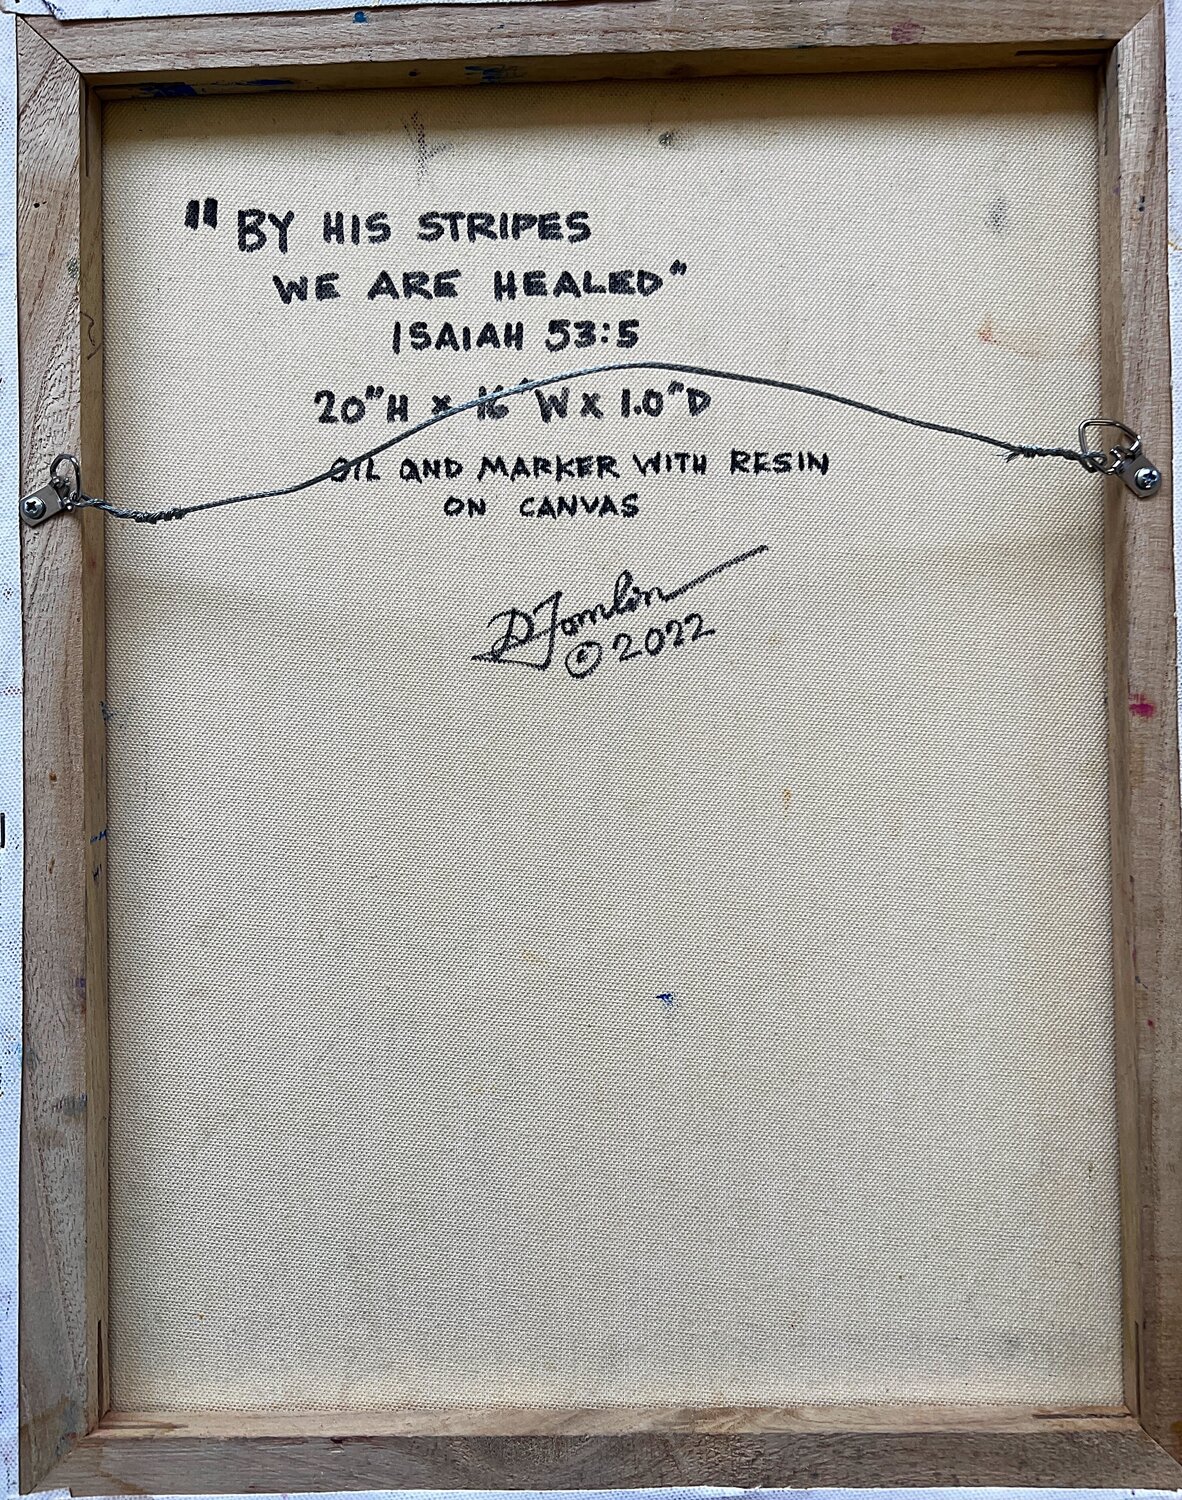 "BY HIS STRIPES
WE ARE HEALED"
ISAIAH 53:5
20"H x 16"W X 1.0"D
OIL AND MARKER WITH RESIN
ON CANVAS
D Tomlin
© 2022